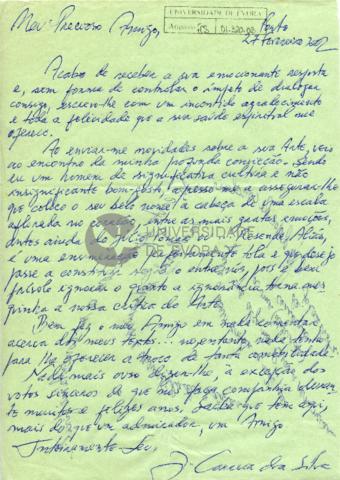 UNIVERSIDADE DE ÉVORA
Arquivo: JS 01.320.02
Porto
27 Fevereiro 2002
Meu Precioso Amigo,
Acabo de receber a sua emocionante resposta
e, sem forma de controlar o ímpeto de dialogar
consigo, escrevo-lhe com um incontido agradecimento
e toda a felicidade que a sua saúde espiritual me
oferece.
Ao enviar-me novidades sobre a sua Arte, veio
ao encontro da minha profunda convicção. Sendo
eu um homem de significativa cultura e não
insignificante bom-gosto, apresso-me a assegurar-lhe
que coloco o seu belo nome à cabeça de uma escala
no coração, entre as mais gratas emoções,
antes ainda de Júlio Pomar, Resende,
é uma enumeração
a construir
ignorar o quanto a ignorância
a nossa crítica de Arte.
Bem fez o meu Amigo em nada comentar
acerca dos meus textos... no entanto, nada tenho
para lhe oferecer a troco de tanta cordialidade!
Nada mais ouso dizer-lhe, à excepção dos
votos sinceros de que nos faça companhia
muitos e felizes anos. Sabe que tem aqui,
mais do que um admirador, um Amigo
Inteiramente Seu,
J. Correia da Silva
UNIVERSIDADE
DE ÉVORA